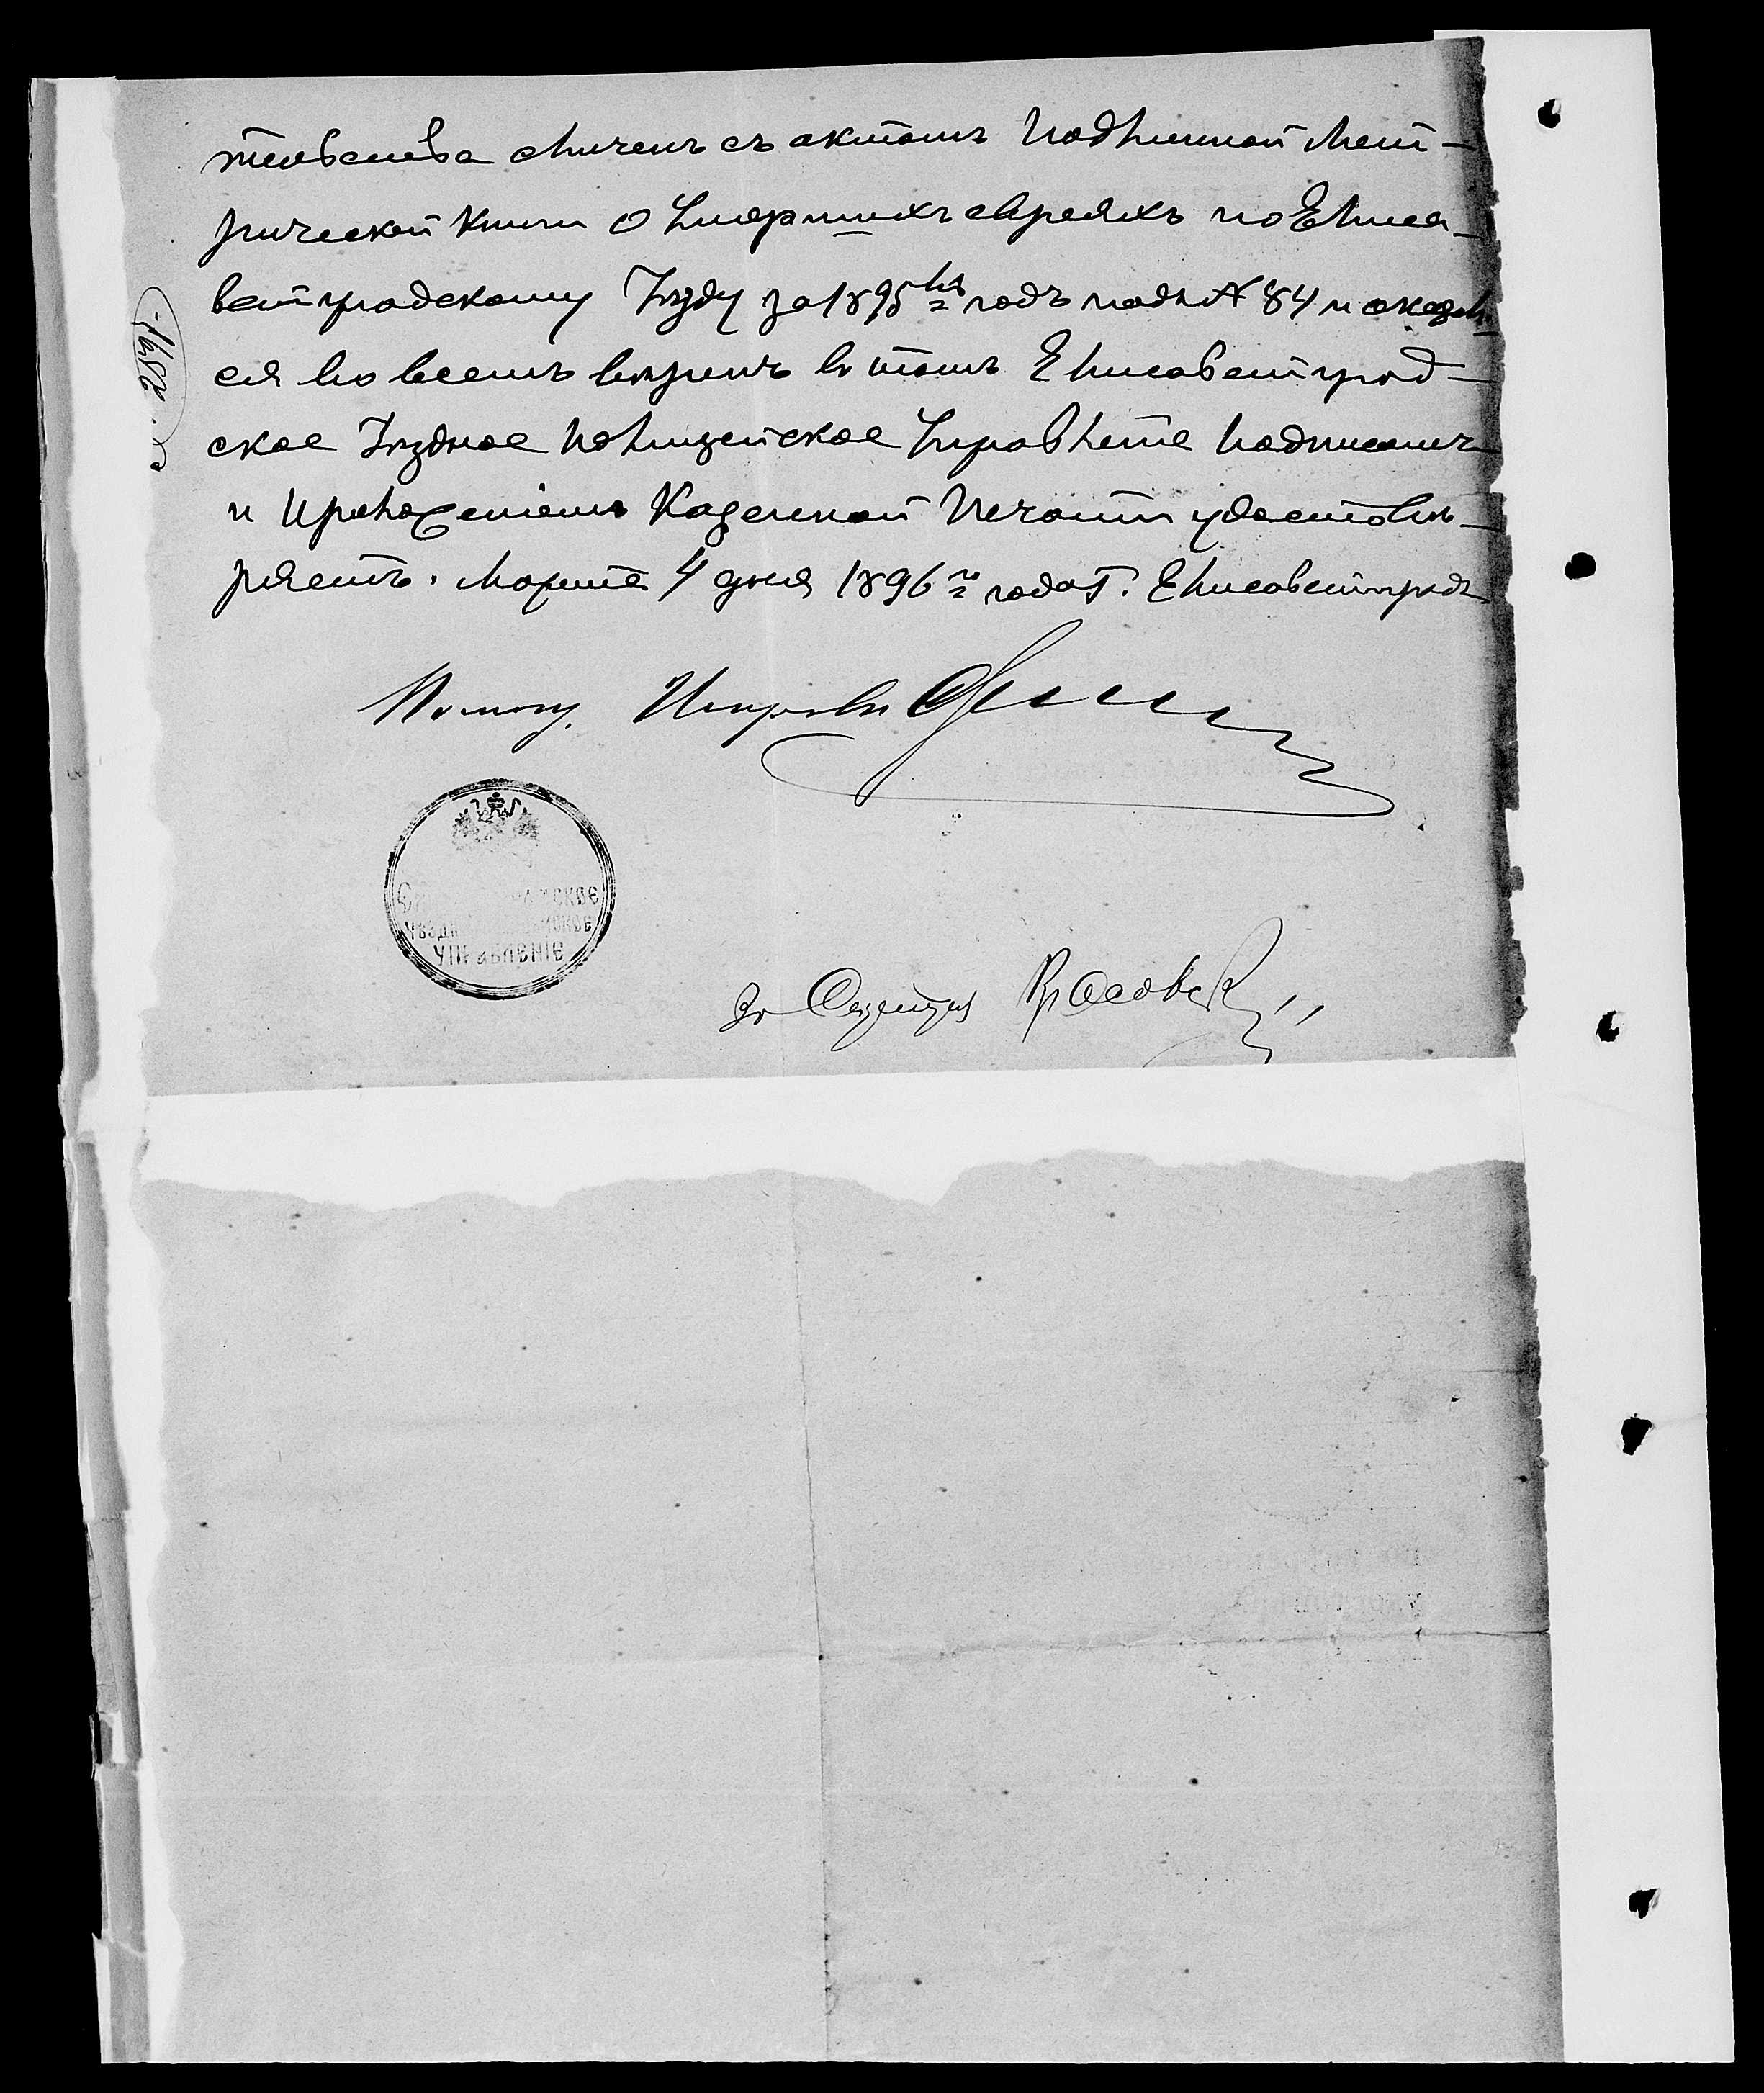 тельства сличенъ съ актомъ подлинной мет-
рической книги о умершихъ евреяхъ по Елиса-
ветградскому Уѣзду за 1895й годъ подъ № 84 и оказал-
ся во всемъ вѣренъ въ томъ Елисаветград-
ское Уѣздное Полицейское Управленіе подписомъ
и приложеніемъ Казенной Печати удостовѣ-
ряетъ. Марта 4 дня 1896го года г. Елисаветградъ
Помощ. Исправн
УПРАВЛЕНІЕ
За Секретаря
1682